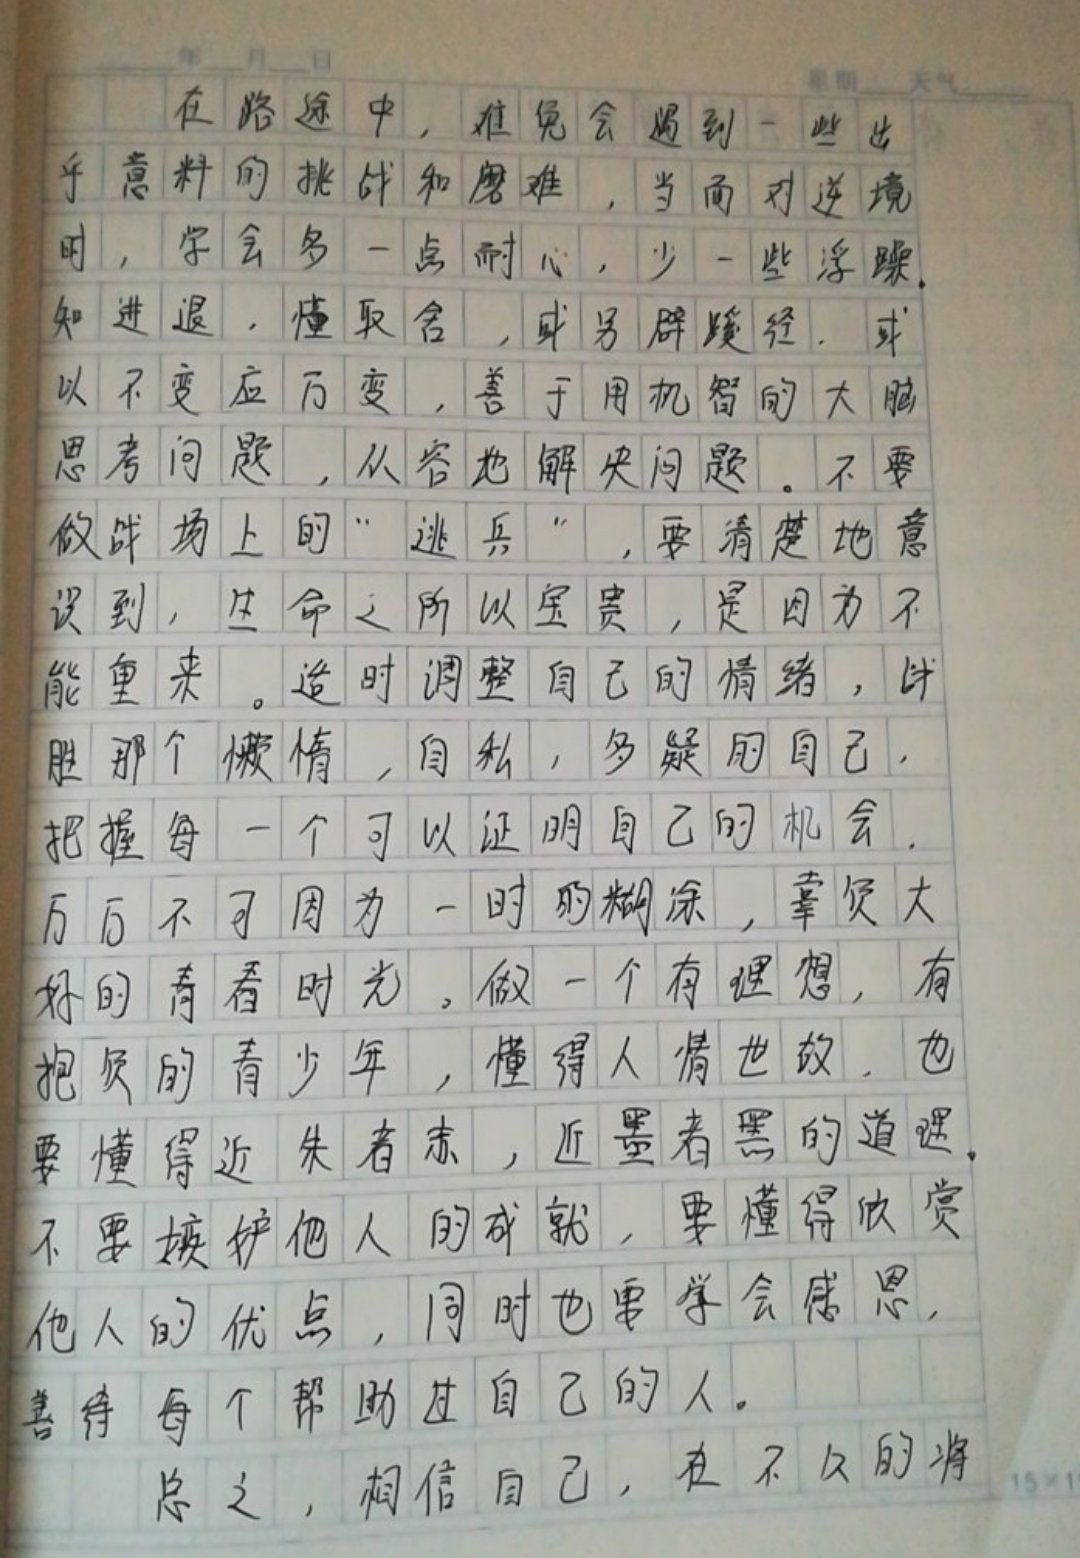 年 月 日
星期 天气
在路途中，难免会遇到一些出
乎意料的挑战和磨难，当面对逆境
时，学会多一点耐心，少一些浮躁.
知进退，懂取舍，或另辟蹊径.或
以不变应万变，善于用机智的大脑
思考问题，从容地解决问题。不要
做战场上的“逃兵”，要清楚地意
识到，生命之所以宝贵，是因为不
能重来。适时调整自己的情绪，战
胜那个懒惰，自私，多疑的自己，
把握每一个可以证明自己的机会.
万万不可因为一时的糊涂，辜负大
好的青春时光。做一个有理想，有
抱负的青少年，懂得人情世故.也
要懂得近朱者赤，近墨者黑的道理.
不要嫉妒他人的成就，要懂得欣赏
他人的优点，同时也要学会感恩，
善待每个帮助过自己的人。
总之，相信自己，在不久的将